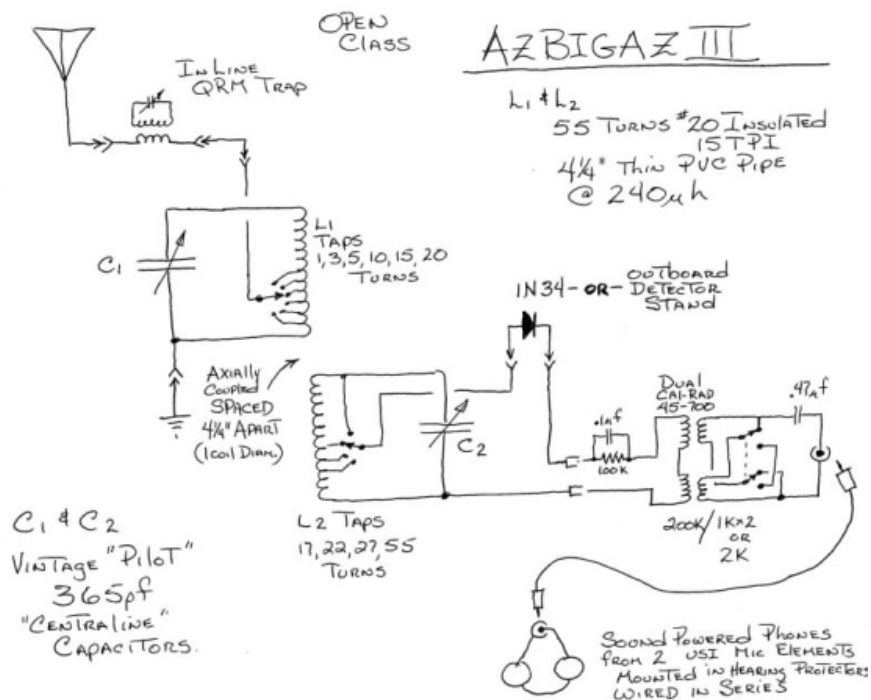 OPEN
CLASS
AZBIGAZ III
IN LINE
QRM TRAP
L1 & L2
55 TURNS #20 INSULATED
15 TPI
4¼" THIN PVC PIPE
@ 240µh
C1
L1
TAPS
1,3,5,10,15,20
TURNS
1N34 - OR - OUTBOARD
DETECTOR
STAND
AXIALLY
COUPLED
SPACED
4¼" APART
(1 COIL DIAM.)
C2
.1µf
100K
DUAL
CAL-RAD
45-700
.47µf
L2 TAPS
17,22,27,55
TURNS
200K/1K×2
OR
2K
C1 & C2
VINTAGE "PILOT"
365pf
"CENTRALINE"
CAPACITORS.
SOUND POWERED PHONES
FROM 2 USI MIC ELEMENTS
MOUNTED IN HEARING PROTECTORS
WIRED IN SERIES